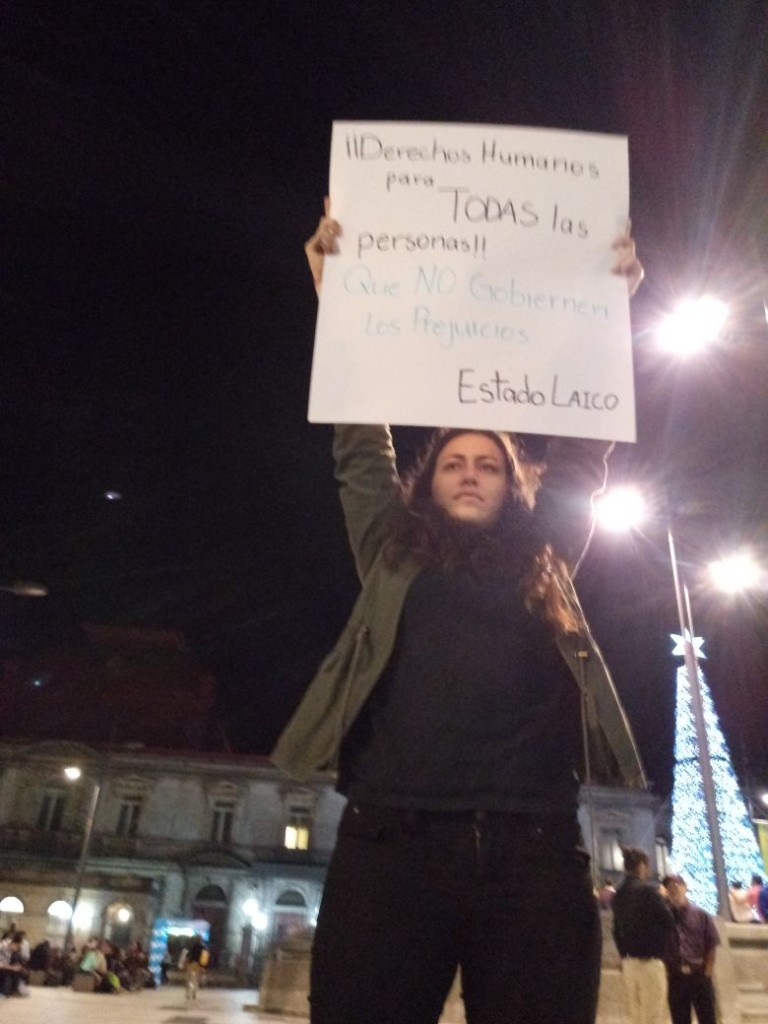 ¡¡Derechos Humanos
para TODAS las
personas!!
Que NO Gobiernen
Los Prejuicios
Estado LAICO